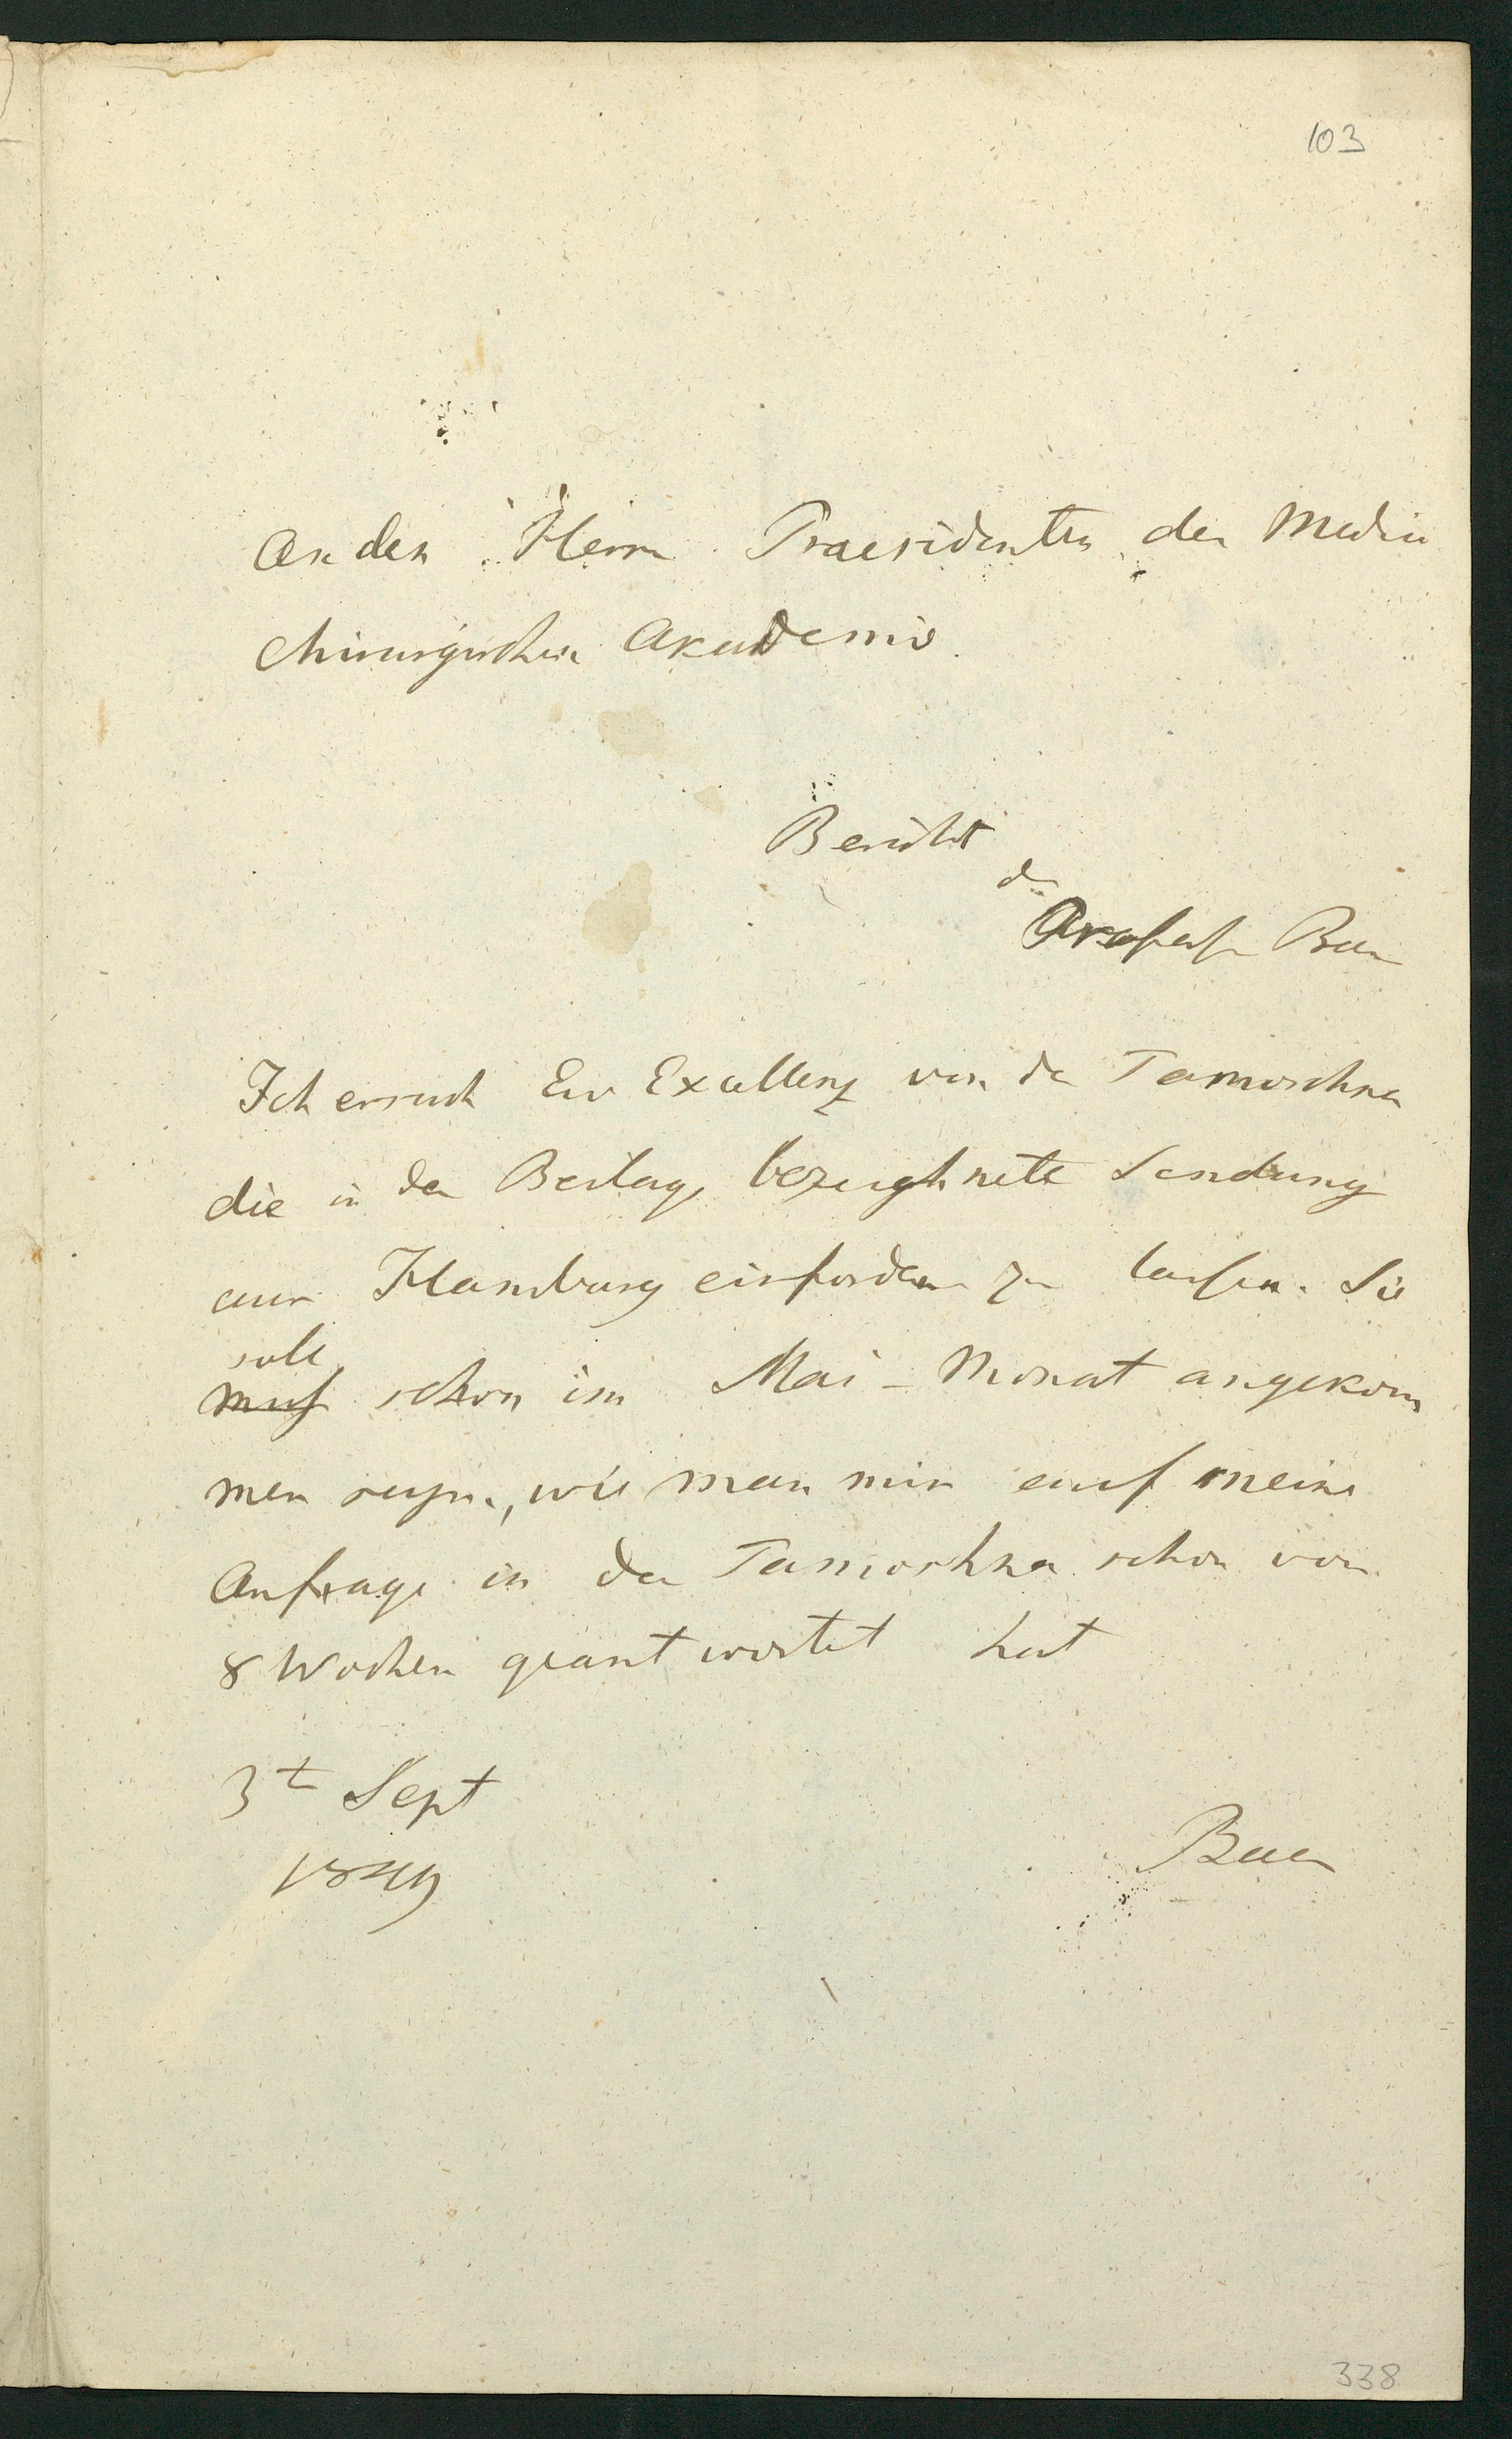 103
An den Herrn Praesidenten der Medico
chirurgischen Akademie.
Bericht
d
Professor Baer
Ich ersuche Ew Excellenz von der Tamoschna
die in der Beilage bezeichnete Sendung
aus Hamburg einfordern zu lassen. Sie
soll
muß schon im Mai-Monat angekom
men seyn, wie man mir auf meine
Anfrage in der Tamoschna schon vor
8 Wochen geantwortet hat
3t Sept
1849
Baer
338